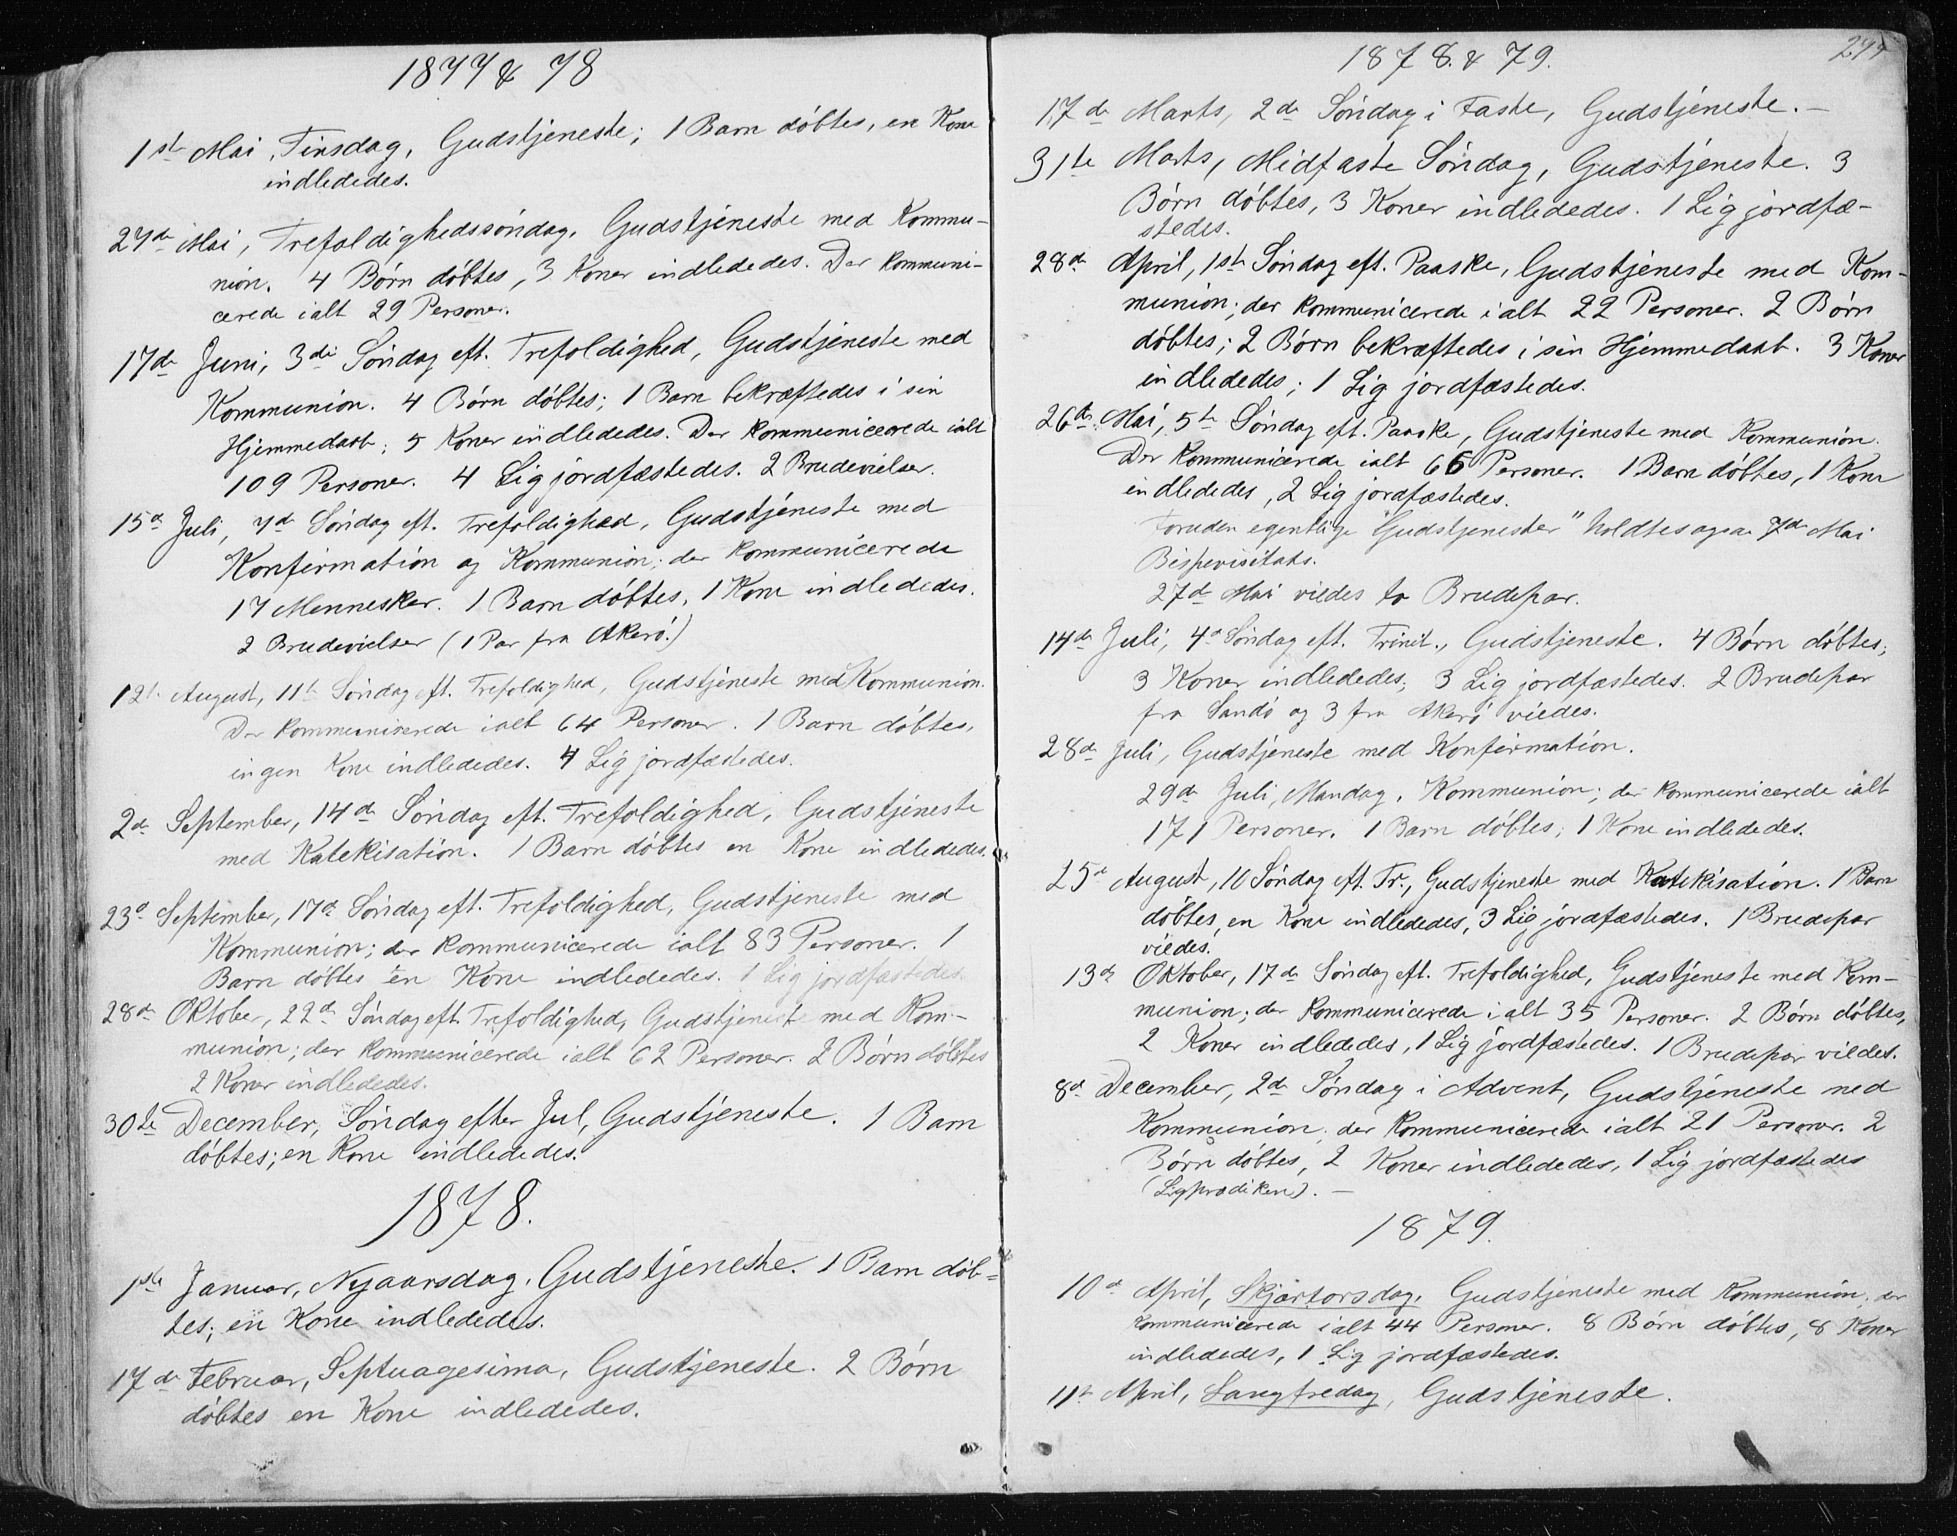 1877 & 78
1ste Mai, Tirsdag, Gudstjeneste; 1 Barn døbtes, en Kone
indlededes.
27de Mai, Trefoldighedssøndag, Gudstjeneste med Kommu-
nion. 4 Børn døbtes, 3 Koner indlededes. Der kommuni-
cerede ialt 29 Personer.
17de Juni, 3die Søndag eft. Trefoldighed, Gudstjeneste med
Kommunion. 4 Børn døbtes; 1 Barn bekræftedes i sin
Hjemmedaab; 5 Koner indlededes. Der kommunicerede ialt
109 Personer. 4 Lig jordfæstedes. 2 Brudevielser.
15de Juli, 7de Søndag eft. Trefoldighed, Gudstjeneste med
Konfirmation og Kommunion; der kommunicerede
17 Mennesker. 1 Barn døbtes, 1 Kone indlededes.
2 Brudevielser (1 Par fra Akerø.)
12te August, 11te Søndag eft. Trefoldighed, Gudstjeneste med Kommunion.
Der kommunicerede ialt 64 Personer. 1 Barn døbtes,
ingen Kone indlededes. 4 Lig jordfæstedes.
2de September, 14de Søndag eft. Trefoldighed, Gudstjeneste
med Katekisation. 1 Barn døbtes en Kone indlededes.
23de September, 17de Søndag eft. Trefoldighed, Gudstjeneste med
Kommunion; der kommunicerede ialt 83 Personer. 1
Barn døbtes en Kone indlededes. 1 Lig jordfæstedes.
28de Oktober, 22de Søndag eft. Trefoldighed, Gudstjeneste med Kom-
munion; der kommunicerede ialt 62 Personer. 2 Børn døbtes
2 Koner indlededes.
30te December, Søndag efter Jul, Gudstjeneste. 1 Barn
døbtes; en Kone indlededes.
1878.
1ste Januar, Nyaarsdag, Gudstjeneste. 1 Barn døb-
tes; en Kone indlededes.
17de Februar, Septuagesima, Gudstjeneste. 2 Børn
døbtes en Kone indlededes.
1878. & 79.
17de Marts, 2de Søndag i Faste, Gudstjeneste. –
31te Marts, Midfaste Søndag, Gudstjeneste. 3
Børn døbtes, 3 Koner indlededes. 1 Lig jordfæ-
stedes.
28de April, 1ste Søndag eft. Paaske, Gudstjeneste med Kom-
munion; der kommunicerede ialt 22 Personer. 2 Børn
døbtes; 2 Børn bekræftedes i sin Hjemmedaab. 3 Koner
indlededes; 1 Lig jordfæstedes.
26de Mai, 5te Søndag eft. Paaske, Gudstjeneste med Kommunion.
Der kommunicerede ialt 66 Personer. 1 Barn døbtes, 1 Kone
indlededes, 2 Lig jordfæstedes.
Foruden egentlige "Gudstjenester" holdtes ogsaa 7de Mai
Bispevisitats.
27de Mai viedes to Brudepar.
14de Juli, 4de Søndag eft. Trinit., Gudstjeneste. 4 Børn døbtes;
3 Koner indlededes; 3 Lig jordfæstedes. 2 Brudepar
fra Sandø og 3 fra Akerø viedes.
28de Juli, Gudstjeneste med Konfirmation.
29de Juli, Mandag, Kommunion; der kommunicerede ialt
171 Personer. 1 Barn døbtes; 1 Kone indlededes.
25de August, 10 Søndag eft. Tr., Gudstjeneste med Katekisation. 1 Barn
døbtes, en Kone indlededes, 3 Lig jordfæstedes. 1 Brudepar
viedes.
13de Oktober, 17de Søndag eft. Trefoldighed, Gudstjeneste med Kom-
munion; der kommunicerede ialt 35 Personer. 2 Børn døbtes,
2 Koner indlededes, 1 Lig jordfæstedes. 1 Brudepar viedes.
8de December, 2de Søndag i Advent, Gudstjeneste med
Kommunion; der kommunicerede ialt 21 Personer. 2
Børn døbtes, 2 Koner indlededes, 1 Lig jordfæstedes
(Ligprædiken). –
1879.
10de April, Skjærtorsdag, Gudstjeneste med Kommunion; der
kommunicerede ialt 44 Personer. 8 Børn døbtes, 8 Koner
indlededes, 1 Lig jordfæstedes.
11te April, Langfredag, Gudstjeneste.